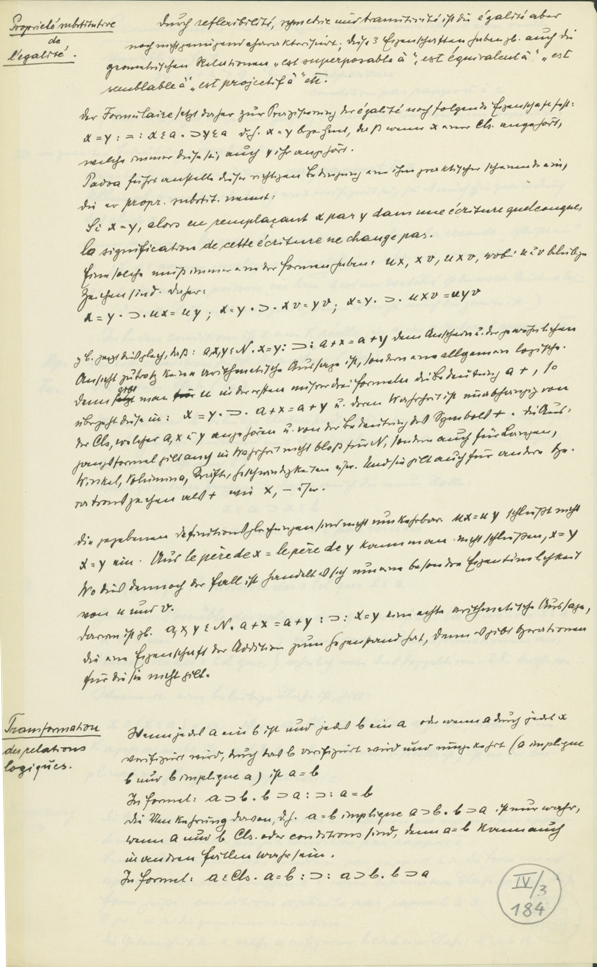 Propriété substitutive
de
l'égalité.
Durch reflexibilité, symetrie und transitivité ist die égalité aber
noch nicht genügend charakterisiert; diese 3 Eigenschaften haben zb. auch die
geometrischen Relationen „est superposable à“, „est équivalent à“, „est
semblable à“, „est projectif à“ etc.
Der Formulaire setzt daher zur Präzisierung der égalité noch folgende Eigenschaft fest:
x = y : = : x ε a . ⊃ y ε a d.h. x = y besagt, daß wenn x einer Cls. angehört,
welche immer diese sei, auch y ihr angehört.
Padoa führt anstelle dieser richtigen Bedingung eine ihm praktischer scheinende ein,
die er propr. substit. nennt:
Si x = y, alors en remplaçant x par y dans une écriture quelconque,
la signification de cette écriture ne change pas.
Eine solche muß immer eine der Formen haben: ux, xv, uxv, wobei u v beliebige
Zeichen sind. Daher:
x = y . ⊃ . ux = uy ; x = y . ⊃ . xv = yv ; x = y . ⊃ . uxv = uyv
zb. zeigt dies gleich, daß: a,x,y ε N . x = y : ⊃ : a + x = a + y dem Anschein u. der gewöhnlichen
Ansicht zutrotz keine arithmetische Aussage ist, sondern eine allgemein logische.
Denn gibt man u in der ersten unserer drei Formeln die Bedeutung a +, so
übergeht diese in: x = y . ⊃ . a + x = a + y u. deren Wahrheit ist unabhängig von
der Cls, welcher a, x u y angehören u. von der Bedeutung des Symbols +. Die Aus-
gangsformel gilt auch in Wahrheit nicht bloß für N, sondern auch für Längen,
Winkel, Volumina, Kräfte, Geschwindigkeiten usw. Und sie gilt auch für andere Ope-
rationszeichen als + wie ×, – usw.
Die gegebenen Definitionsgleichungen sind nicht umkehrbar. ux = uy schließt nicht
x = y ein. Aus le père de x = le père de y kann man nicht schließen, x = y
Wo dies dennoch der Fall ist handelt es sich um eine besondre Eigentümlichkeit
von u und v.
Darum ist zb. a,x,y ε N . a + x = a + y : ⊃ : x = y eine echte arithmetische Aussage,
die eine Eigenschaft der Addition zum Gegenstand hat, denn es gibt Operationen
für die sie nicht gilt.
Transformation
des relations
logiques.
Wenn jedes a ein b ist und jedes b ein a oder wenn a durch jedes x
verifiziert wird, durch das b verifiziert wird und umgekehrt (a implique
b und b implique a) ist a = b
In Formel: a ⊃ b . b ⊃ a : ⊃ : a = b
Die Umkehrung davon, d.h. a = b implique a ⊃ b . b ⊃ a ist nur wahr,
wenn a und b Cls. oder conditions sind, denn a = b kann auch
in andren Fällen wahr sein.
In Formel: a ε Cls . a = b : ⊃ : a ⊃ b . b ⊃ a
IV/3
184